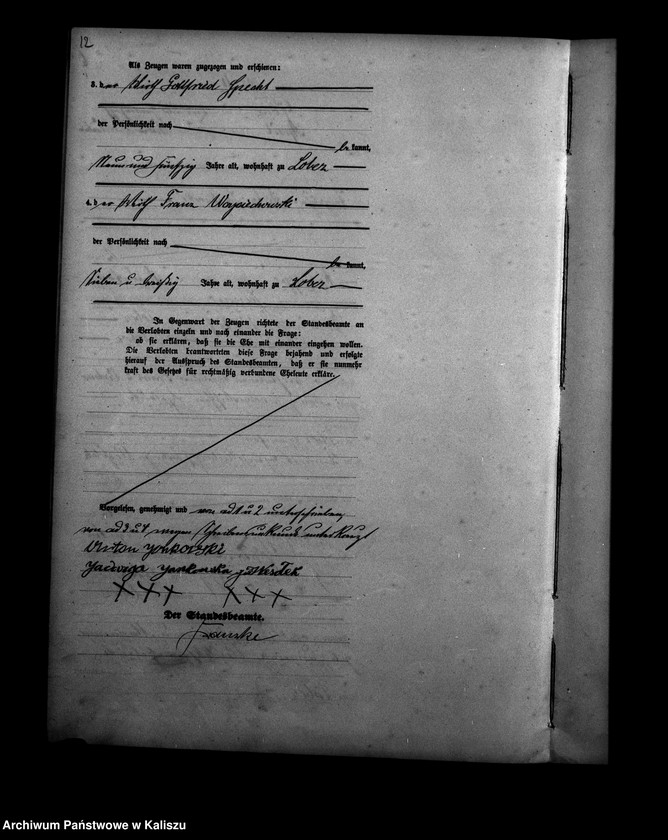 12
Als Zeugen waren zugezogen und erschienen:
3. der Wirth Gottfried Specht
der Persönlichkeit nach
be kannt,
Neun und fünfzig Jahre alt, wohnhaft zu Lobez
4. der Wirth Franz Woyciechowski
der Persönlichkeit nach
be kannt,
Sieben u dreißig Jahre alt, wohnhaft zu Lobez
In Gegenwart der Zeugen richtete der Standesbeamte an
die Verlobten einzeln und nach einander die Frage:
ob sie erklären, daß sie die Ehe mit einander eingehen wollen.
Die Verlobten beantworteten diese Frage bejahend und erfolgte
hierauf der Ausspruch des Standesbeamten, daß er sie nunmehr
kraft des Gesetzes für rechtmäßig verbundene Eheleute erkläre.
Vorgelesen, genehmigt und von ad 1 u 2 unterschrieben
von ad 3 u 4 wegen Schreibensunkunde unterkreuzt
Anton
Jadwiga
XXX XXX
Der Standesbeamte.
Archiwum Państwowe w Kaliszu